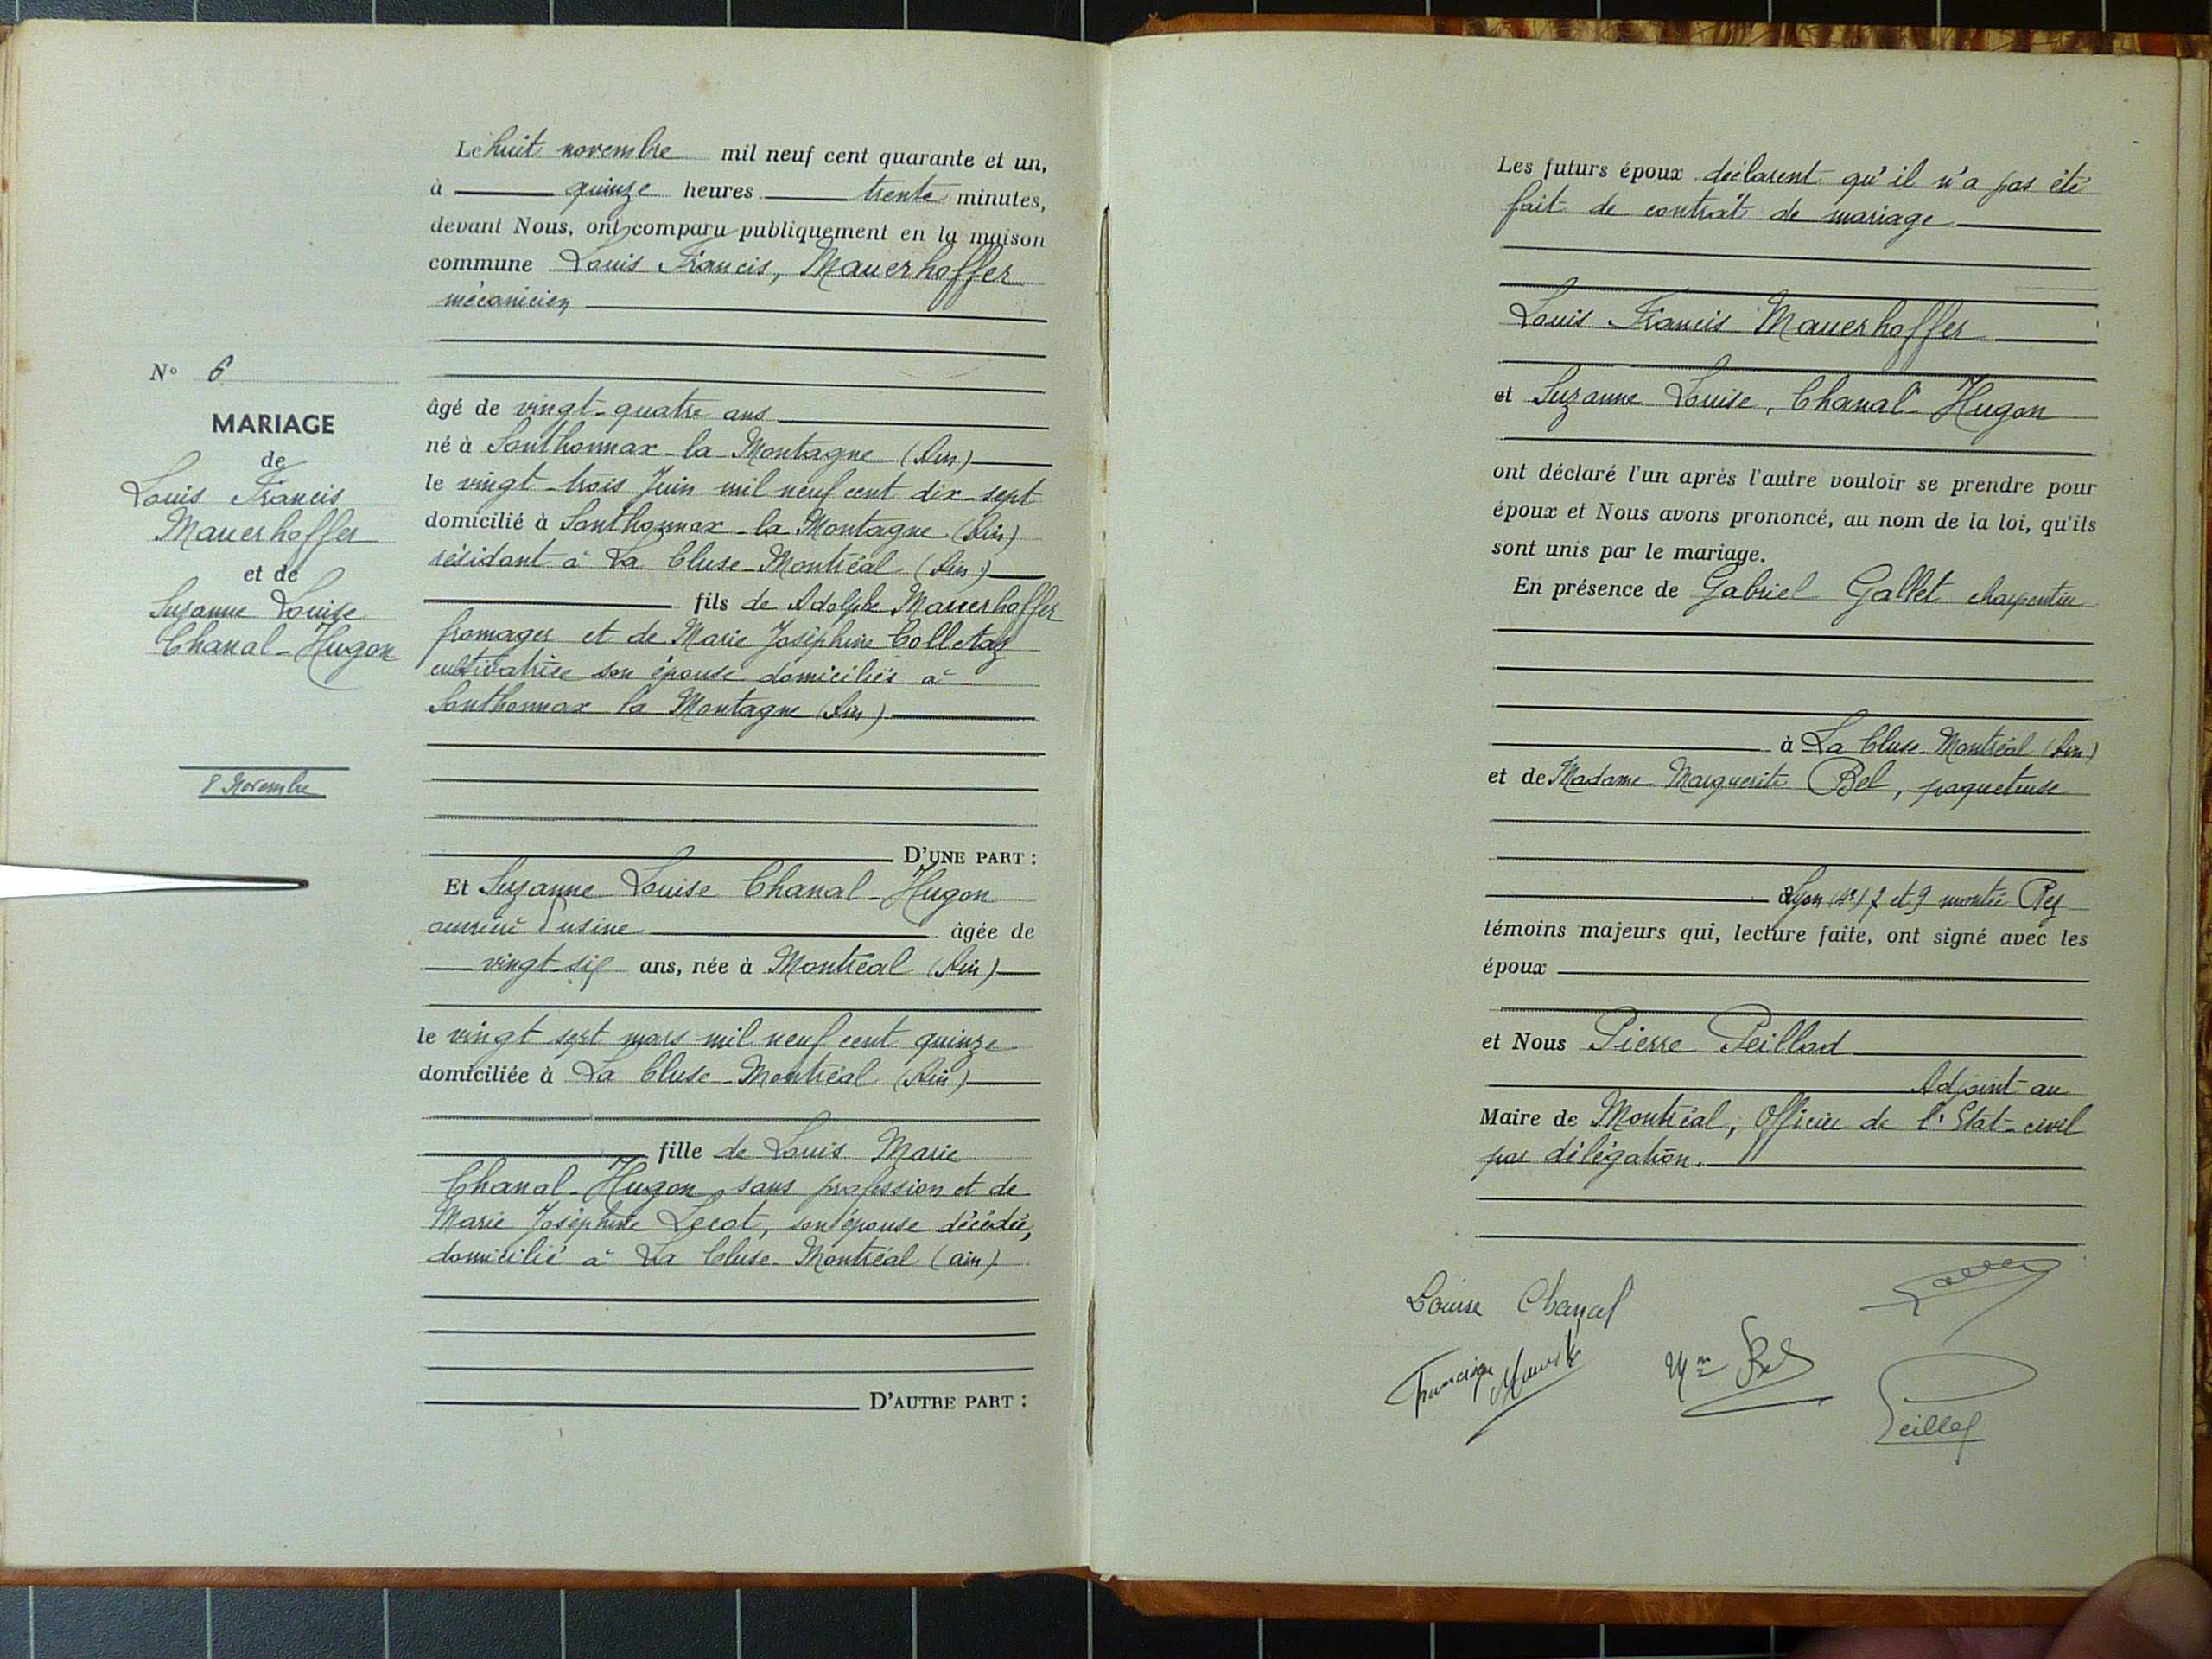 N° 6
MARIAGE
de
Louis Francis
Mauerhoffer
et de
Suzanne Louise
Chanal-Hugon
8 Novembre
Le huit novembre mil neuf cent quarante et un,
à quinze heures trente minutes,
devant Nous, ont comparu publiquement en la maison
commune Louis Francis, Mauerhoffer
mécanicien
âgé de vingt-quatre ans
né à Sonthonnax-la-Montagne (Ain)
le vingt-trois Juin mil neuf cent dix-sept
domicilié à Sonthonnax-la-Montagne (Ain)
résidant à La Cluse-Montréal (Ain)
fils de Adolphe Mauerhoffer
fromager et de Marie Josèphine Colletaz
cultivatrice son épouse domiciliés à
Sonthonnax la Montagne (Ain)
D'UNE PART :
Et Suzanne Louise Chanal-Hugon
ouvrière d'usine âgée de
vingt-six ans, née à Montréal (Ain)
le vingt sept mars mil neuf cent quinze
domiciliée à La Cluse-Montréal (Ain)
fille de Louis Marie
Chanal-Hugon, sans profession et de
Marie Josèphine Lecot, son épouse décédée,
domicilié à La Cluse-Montréal (ain)
D'AUTRE PART :
Les futurs époux déclarent qu'il n'a pas été
fait de contrat de mariage
Louis Francis Mauerhoffer
et Suzanne Louise, Chanal-Hugon
ont déclaré l'un après l'autre vouloir se prendre pour
époux et Nous avons prononcé, au nom de la loi, qu'ils
sont unis par le mariage.
En présence de Gabriel Gallet charpentier
à La Cluse-Montréal (Ain)
et de Madame Marguerite Bel, paqueteuse
à Lyon 7 et 9 montée Rey
témoins majeurs qui, lecture faite, ont signé avec les
époux
et Nous Pierre Peillod
Adjoint au
Maire de Montréal, Officier de l'Etat-civil
par délégation.
Louise Chanal
Mme Bel
Peillod